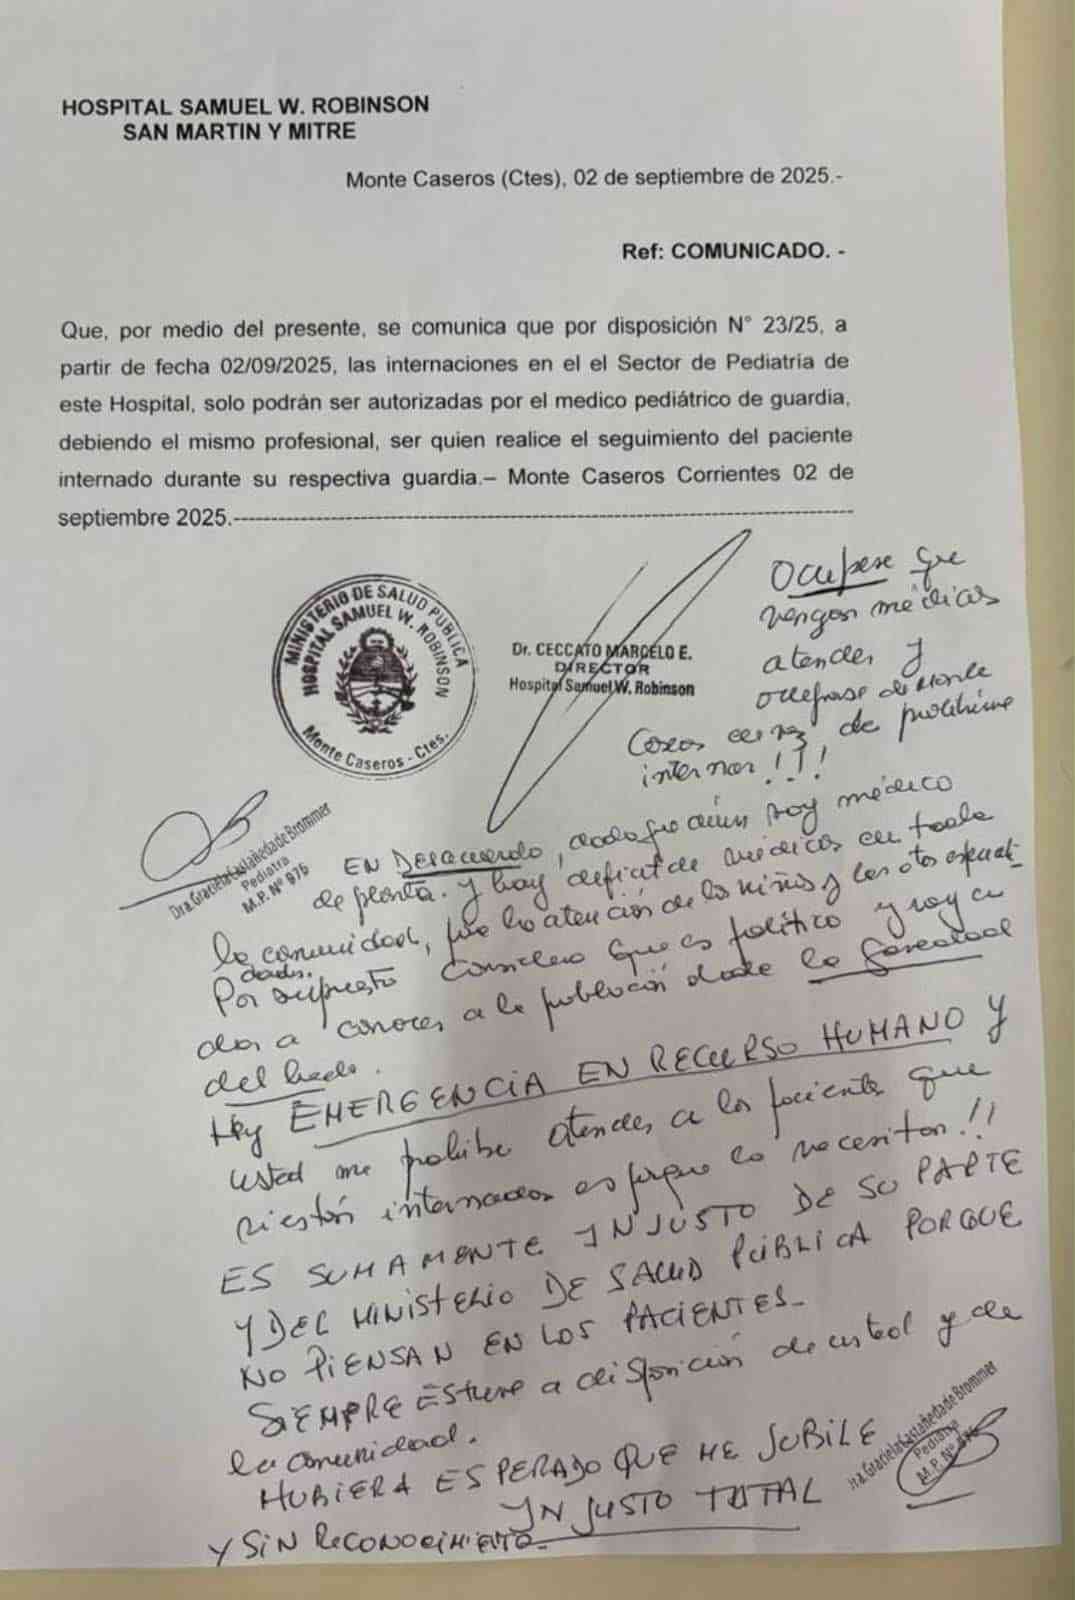 HOSPITAL SAMUEL W. ROBINSON
SAN MARTIN Y MITRE
Monte Caseros (Ctes), 02 de septiembre de 2025.-
Ref: COMUNICADO. -
Que, por medio del presente, se comunica que por disposición N° 23/25, a
partir de fecha 02/09/2025, las internaciones en el el Sector de Pediatría de
este Hospital, solo podrán ser autorizadas por el medico pediátrico de guardia,
debiendo el mismo profesional, ser quien realice el seguimiento del paciente
internado durante su respectiva guardia.– Monte Caseros Corrientes 02 de
septiembre 2025.-----
MINISTERIO DE SALUD PUBLICA
HOSPITAL SAMUEL W. ROBINSON
Monte Caseros - Ctes.
Dr. CECCATO MARCELO E.
DIRECTOR
Hospital Samuel W. Robinson
Ocupese que
vengan médicos
atender y
de Monte
Caseros en vez de prohibirme
internar!!!
Dra. Graciela Castañeda de Brommer
Pediatra
M.P. Nº 975
EN Desacuerdo, dado que aún soy médico
de planta. y hay deficit de médicos en toda
la comunidad, la atención de los niños y las otras especiali-
dades.
Por supuesto considero que es político y voy a
dar a conocer a la población desde la
del hecho.
Hay EMERGENCIA EN RECURSO HUMANO Y
usted me prohibe atender a los paciente que
si están internados es porque lo necesitan!!
ES SUMAMENTE INJUSTO DE SU PARTE
Y DEL MINISTERIO DE SALUD PÚBLICA PORQUE
NO PIENSAN EN LOS PACIENTES-
SIEMPRE ESTUVE a disposición de usted y de
la comunidad.
HUBIERA ESPERADO QUE ME JUBILE
INJUSTO TOTAL
Y SIN RECONOCIMIENTO-
Dra. Graciela Castañeda de Brommer
Pediatra
M.P. Nº 975